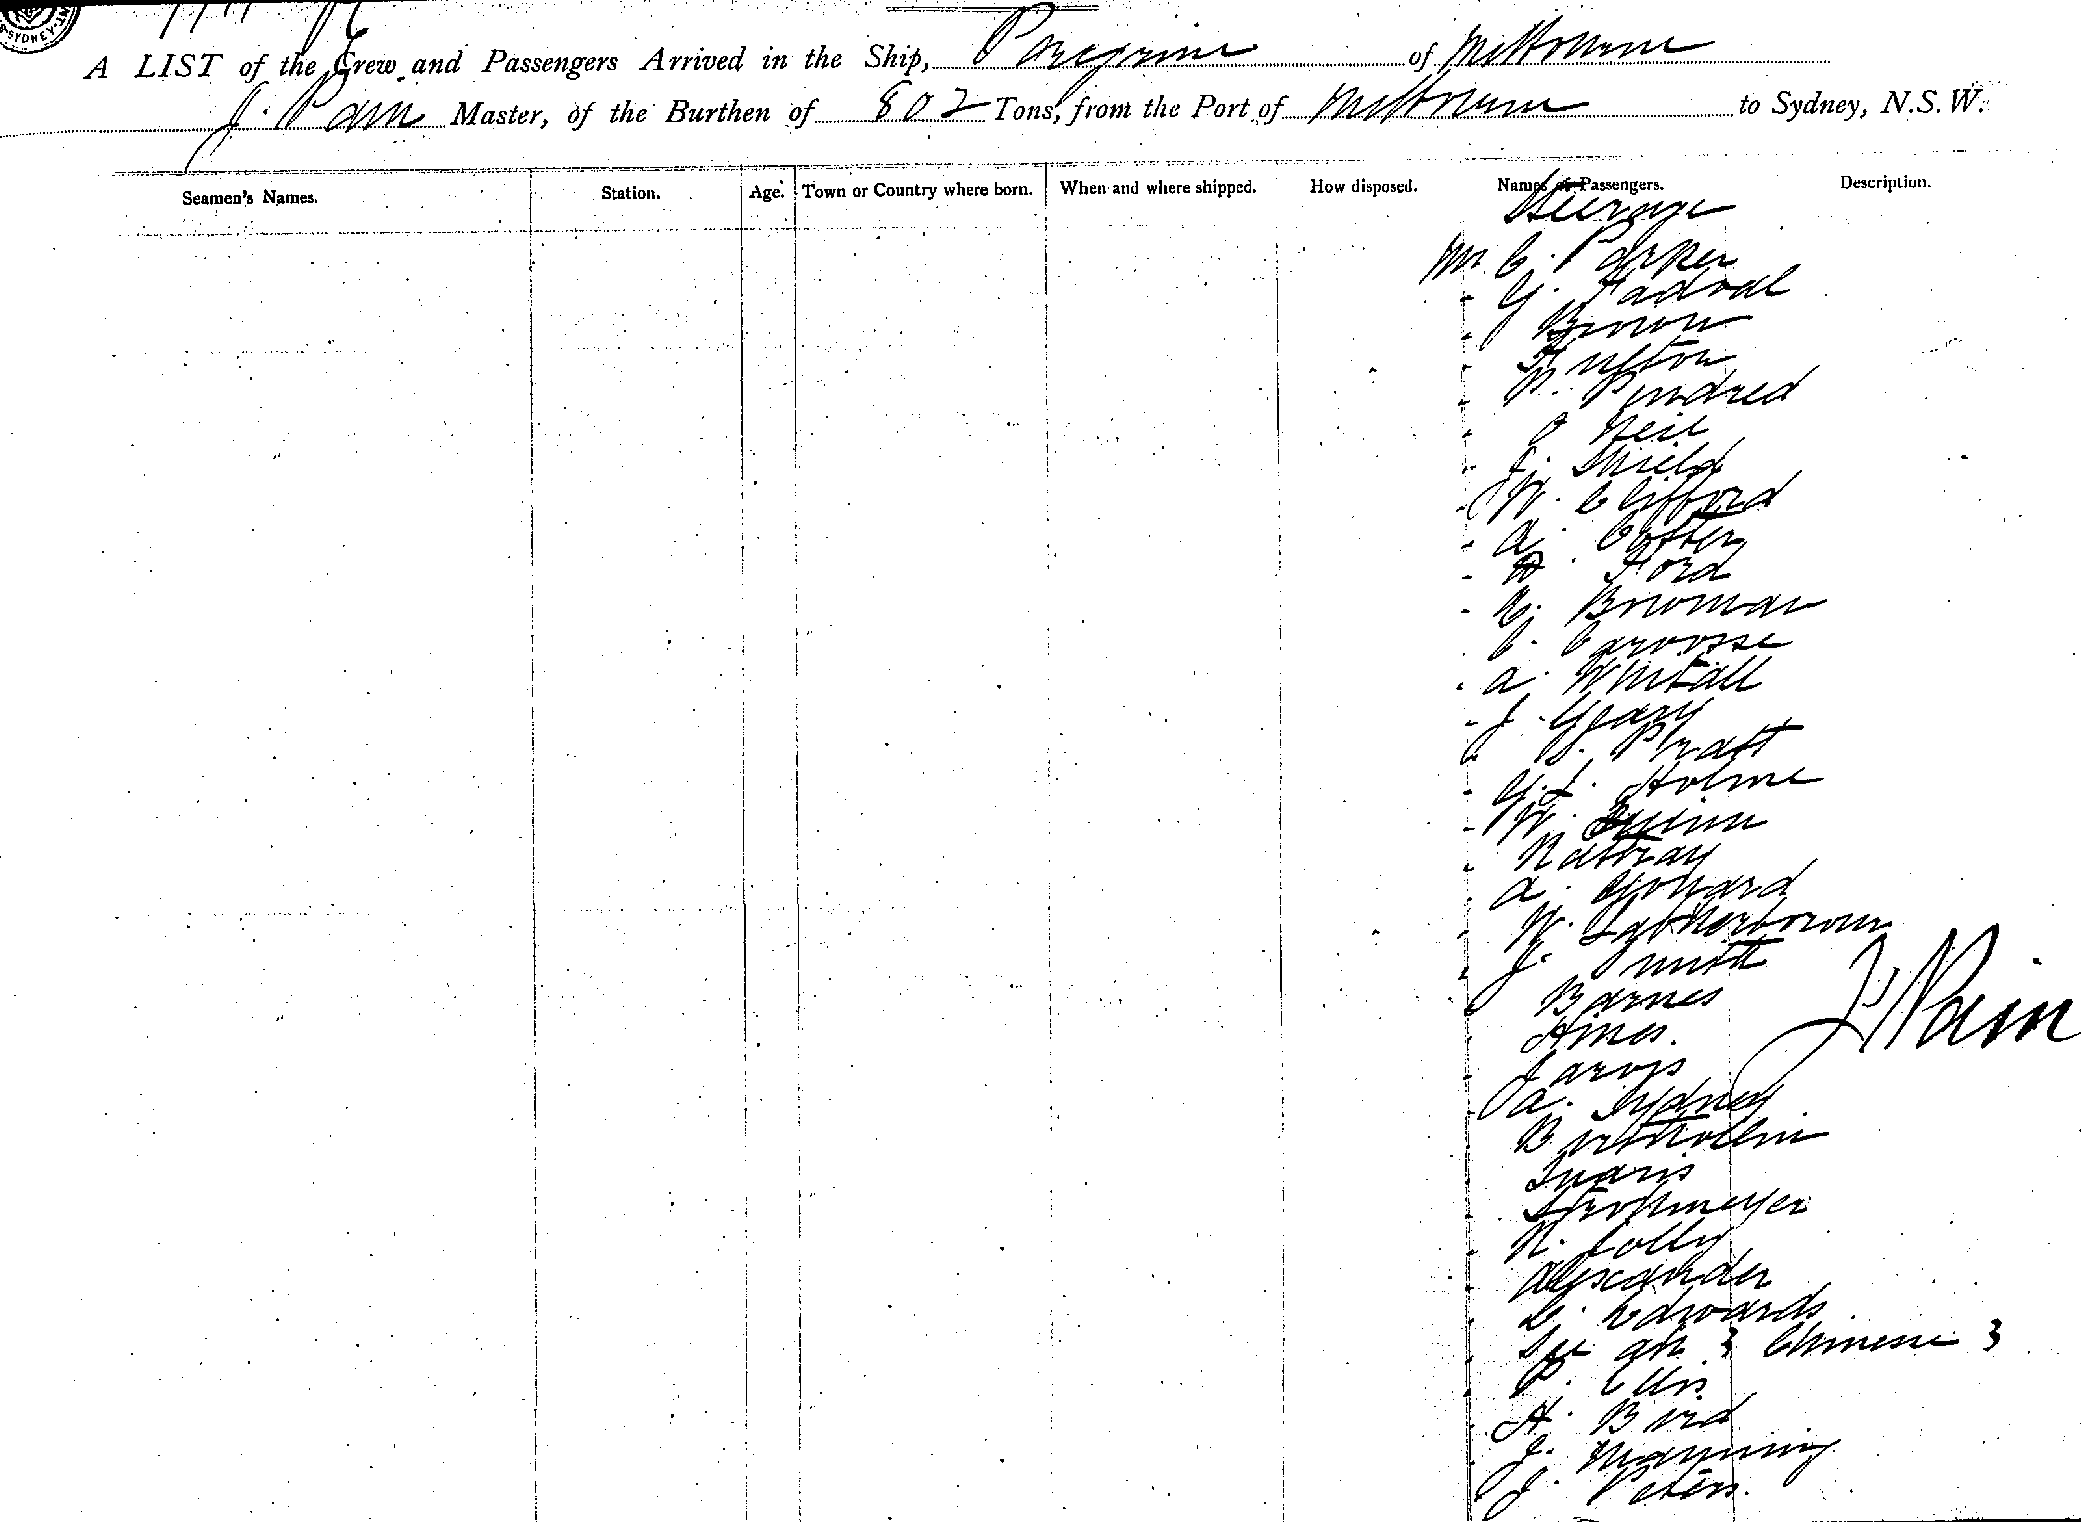 SYDNEY
A LIST of the Crew and Passengers Arrived in the Ship, Peregrine of Melbourne
J. Pain Master, of the Burthen of 802 Tons, from the Port of Melbourne to Sydney, N.S.W.
Seamen's Names. Station. Age. Town or Country where born. When and where shipped. How disposed. Names of Passengers. Description.
Steerage
Mr C. Parker
" G. Padval
" Brown
" Fulton
" Pindred
" Neil
" J. Shield
" W. Clifford
" A. Cotter
" Ford
" Bowman
" C.
" A. Whitall
" J. Geary
" Pratt
" G. J. Holme
" W. Quinn
" Nattray
" A. Gothard
" W.
" J. Smith
" Barnes
" Ames.
" Jarvis
" A. Sydney
" 
" 
" Strohmeyer
" N. Jolly
" Alexander
" Edwards
" See Ah 3 Chinese 3
" Ellis
" A. Bird
" J. Manning
" J. Peters.
J Pain